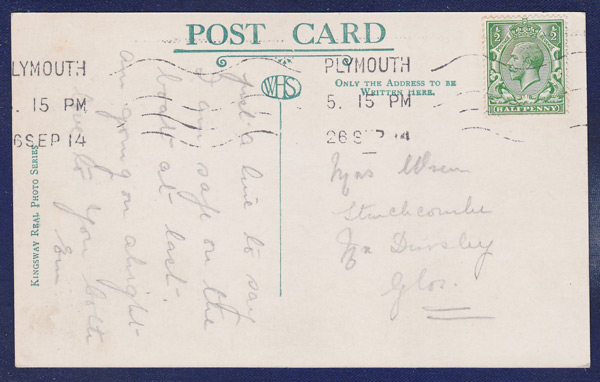 POST CARD
LYMOUTH
5. 15 PM
6 SEP 14
PLYMOUTH
5. 15 PM
26 SEP 14
WHS
ONLY THE ADDRESS TO BE
WRITTEN HERE.
1/2 1/2
HALFPENNY
KINGSWAY REAL PHOTO SERIES
Just a line to say
I am safe on the
boat at last.
am going on alright
love to you both
Mrs Wren
Stinchcombe
Nr Dursley
Glos.